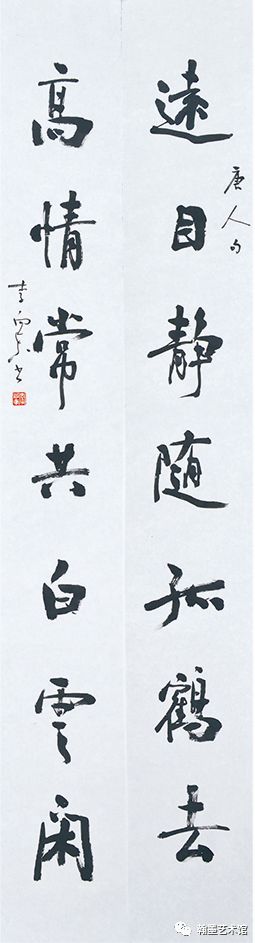 遠目静隨孤鶴去
唐人句
高情常共白雲閑
翰墨艺术馆